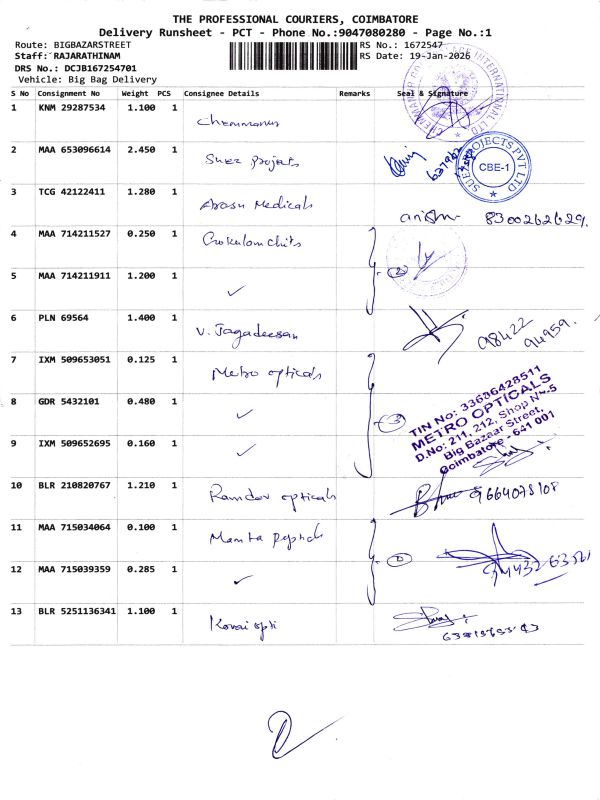 THE PROFESSIONAL COURIERS, COIMBATORE
Delivery Runsheet - PCT - Phone No.:9047080280 - Page No.:1
Route: BIGBAZARSTREET RS No.: 1672547
Staff: RAJARATHINAM RS Date: 19-Jan-2026
DRS No.: DCJB167254701
Vehicle: Big Bag Delivery
S No Consignment No Weight PCS Consignee Details Remarks Seal & Signature
1 KNM 29287534 1.100 1 Chemmanur
2 MAA 653096614 2.450 1 Suez projects
SUEZ PROJECTS PVT LTD
CBE-1
3 TCG 42122411 1.280 1 Arasu Medicals
8300262629.
4 MAA 714211527 0.250 1 Gokulam chits
2
5 MAA 714211911 1.200 1 ✓
6 PLN 69564 1.400 1 V. Jagadeesan
98422
94959.
7 IXM 509653051 0.125 1 Metro opticals
8 GDR 5432101 0.480 1 ✓
3
TIN No: 33636428511
METRO OPTICALS
D.No: 211, 212, Shop No-5
Big Bazaar Street,
Coimbatore - 641 001
9 IXM 509652695 0.160 1 ✓
10 BLR 210820767 1.210 1 Ramdev opticals
11 MAA 715034064 0.100 1 Mamta
12 MAA 715039359 0.285 1 ✓
13 BLR 5251136341 1.100 1 Kovai opti